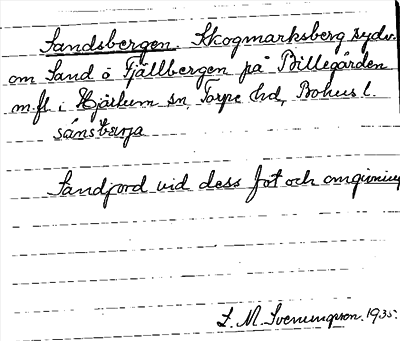 Sandsbergen Skogmarksberg sydv.
om Sand ö Fjällbergen på Billegården
m.fl. i Hjärtum sn, Torpe hd, Bohusl.
sånsbærja
Sandjord vid dess fot och omgivning
L. M. Svenungsson. 1935.